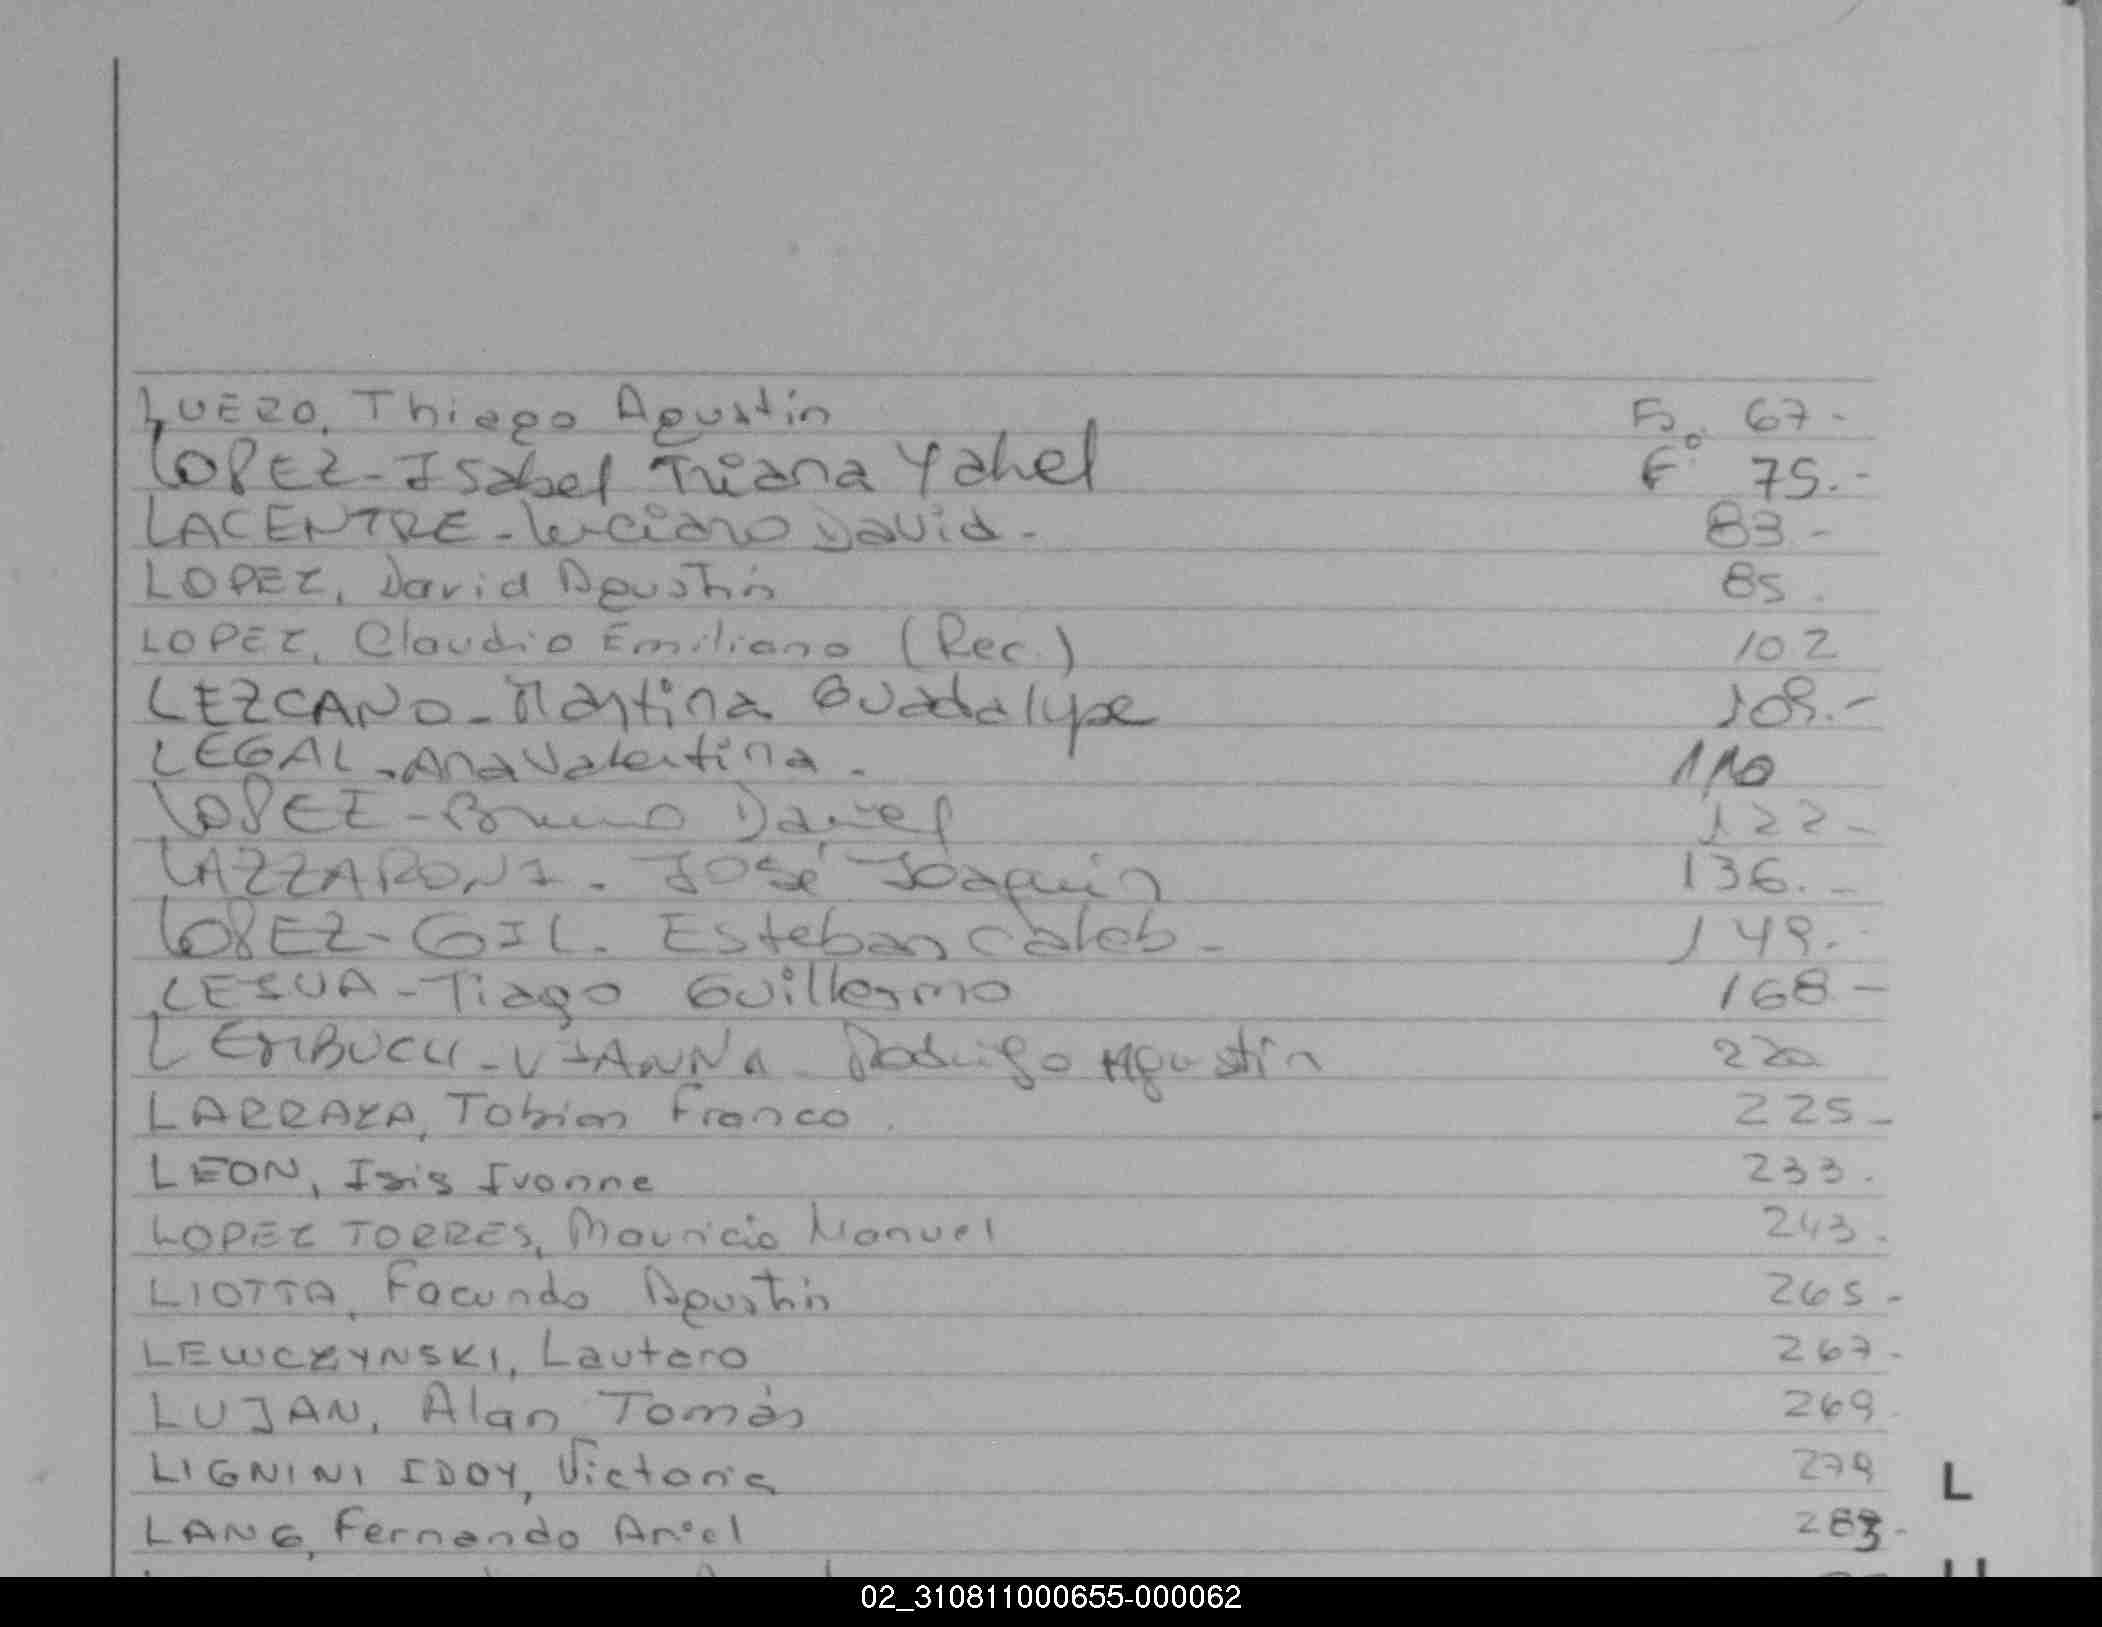 LUEZO, Thiago Agustín Fo. 67-
LOPEZ-Isabel Triana Yahel Fº 75.-
LACENTRE-Luciano David- 83.-
LOPEZ, David Agustín 85.
LOPEZ, Claudio Emiliano (Rec.) 102
LEZCANO-Martina Guadalupe 109.-
LEGAL-Ana Valentina. 110
LOPEZ-Bruno Daniel 122-
LAZZARONI. José Joaquin 136.-
LOPEZ-GIL. Esteban Caleb- 149.-
LESUA-Tiago Guillermo 168-
LEMBUCU-VIANNA Rodrigo Agustín 220
LARRAZA, Tobias Franco. 225-
LEON, Isis Ivonne 233.
LOPEZ TORRES, Mauricio Manuel 243.
LIOTTA, Facundo Agustín 265-
LEWCZYNSKI, Lautaro 267-
LUJAN, Alan Tomás 269.
LIGNINI IDOY, Victoria 279
L
LANG, Fernando Ariel 283-
02_310811000655-000062